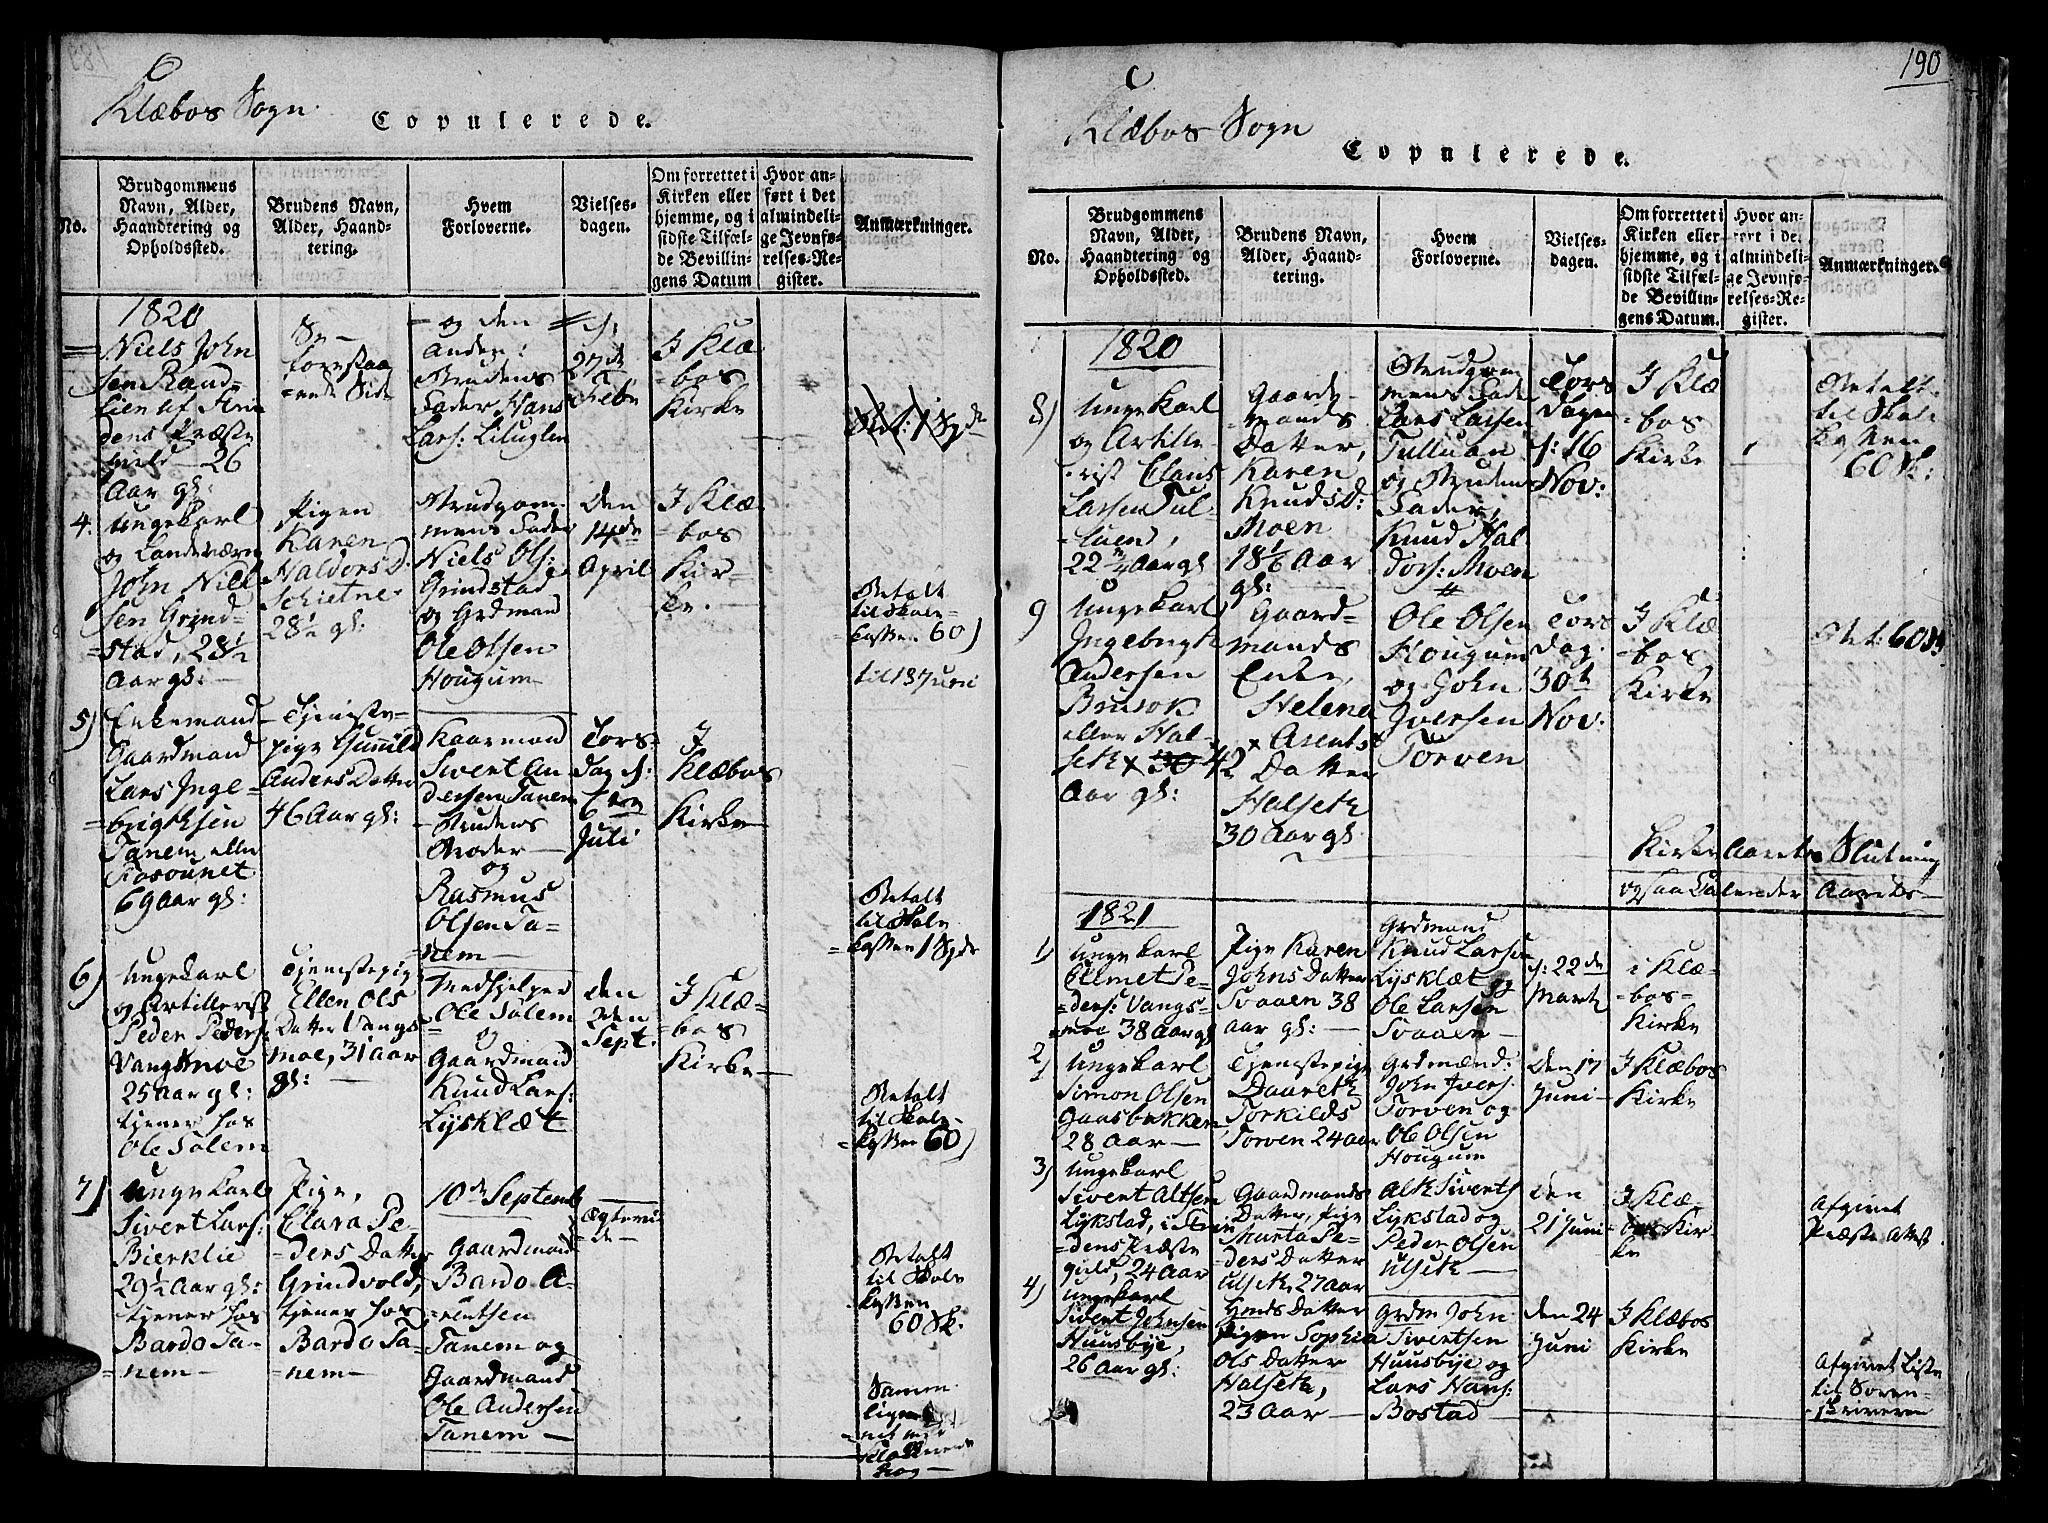 Klæbos Sogn.
Copulerede.
No.
Brudgommens
Navn, Alder,
Haandtering og
Opholdssted.
Brudens Navn,
Alder, Haand-
tering.
Hvem
Forloverne.
Vielses-
dagen.
Om forrettet i
Kirken eller
hjemme, og i
sidste Tilfæl-
de Bevillin-
gens Datum
Hvor an-
ført i det
almindeli-
ge Jevnfø-
relses-Re-
gister.
Anmærkninger.
1820
Niels John
sen Rand-
lien af
dens Præste
gield 26
Aar gl:
Se
forestaa
ende Side
og den
anden:
Brudens
Fader Hans
Lars:
27de
Febr
I Klæ
bos
Kirke
4.
Ungekarl
og Landeværn
John Niel
sen Grind-
stad, 28½
Aar gl:
Pigen
Karen
HaldorsD.
Schietne
28½ gl:
Brudgom
mens Fader
Niels Ols:
Grindstad
og Grdmand
Ole Olsen
Hougum
Den
14de
April
I Klæ-
bos
Kir-
ke.
Betalt
til Skole-
kassen 60)
til 13 Juni
5)
Enkemand
Gaardmand
Lars Inge-
brigtsen
Tanem eller
69 Aar gl:
Tjeneste-
pige Gunild
Anders Datter
46 Aar gl:
Kaarmand
Sivert An
dersen Tanem
Brudens
Broder
og
Rasmus
Olsen Ta-
nem
Tors-
dag d:
6te
Juli
I
Klæbos
Kirke
Betalt
til Skole
kassen 1 Spd
6)
Ungekarl
og Artillerist
Peder Peders:
Vangsmoe
25 Aar gl:
tjener hos
Ole Salem
Tjenestepig
Ellen Ols
Datter Vangs
moe, 31 Aar
gl:
Medhjelper
Ole Salem
og
Gaardmand
Knud Lars:
Lysklæt
den
Sept.
I Klæ-
bos
Kirke
Betalt
til Skole-
kassen 60)
7)
Ungekarl
Sivert Lars:
Bierklie
29½ Aar gl:
tjener hos
Bardo Ta-
nem
Pige,
Clara Pe-
ders Datter
Grindvold,
tjener hos
Bardo Ta-
nem
10de Septemb
Gaardmand
Bardo A-
rentsen
Tanem og
Gaardmand
Ole Andersen
Tanem
Betalt
til Skole
kassen
60 Sk.
Klæbos Sogn
190
Copulerede.
No.
Brudgommens
Navn, Alder,
Haandtering og
Opholdssted.
Brudens Navn,
Alder, Haand-
tering.
Hvem
Forloverne.
Vielses-
dagen.
Om forrettet i
Kirken eller
hjemme, og i
sidste Tilfæl-
de Bevillin-
gens Datum.
Hvor an-
ført i de
almindeli-
ge Jevnfø-
relses-Re-
gister.
Anmærkninger.
1820
8)
Ungekarl
og Artille-
rist Claus
Larsen Tul-
luen,
22 Aar gl
Gaard-
mands
Datter,
Karen
KnudsD:
Moen
18½ Aar
gl:
Brudgom
mens Fader
Lars Larsen
Tulluan
og Brudens
Fader,
Knud Hal
dors: Moen
Tors
dagen
d: 16
Nov:
I Klæ
bos
Kirke
Betalt
til Skole
kassen
60 Sk:
9
Ungekarl
Ingebrigt
Andersen
Brusok
eller Hal-
seth 42
Aar gl:
Gaard-
mands
Enke,
Helena
Arents
Datter
Halseth
30 Aar gl.
Ole Olsen
Hougum
og John
Iversen
Torven
Tors
dag.
30te
Nov:
I Klæ
bos
Kirke
Bet: 60 Sk
Kirke Aarets Slutning
og saa Calender Aarets
1821
1)
Ungekarl
Ellmet Pe-
ders: Vangs-
moe 38 Aar gl
Pige Karen
Johns Datter
Svaaen 38
Aar gl:
Grdmand
Knud Larsen
Lysklæt og
Ole Larsen
Svaaen
d: 22de
Marts
i Klæ-
bos-
Kirke
2)
Ungekarl
Simon Olsen
Gaasbakken
28 Aar
Tjenestepige
Daareth
Torkilds
Torven 24 Aar
Grdmænd:
John Ivers:
Torven og
Ole Olsen
Hougum
Den 17
Juni
I Klæbos
Kirke
3)
Ungekarl
Sivert Altsen
Lykstad, i Strin
dens Præste
gield, 24 Aar
Gaardmands
Datter, Pige
Marta Pe-
ders Datter
Ulseth, 27 Aar
Alth Siverts
Lykstad og
Peder Olsen
Ulseth
den
21 Juni
I Klæ-
bos Kir-
ke
Afgivet
Præste Attest
4)
Ungekarl
Sivert Johnsen
Huusbye,
26 Aar gl:
Pigen Sophia
Ols Datter
Halseth,
23 Aar
Grdm John
Sivertsen
Huusbye og
Lars Hans:
Bostad
Den 24
Juni
I Klæbos
Kirke
Afgivet Liste
til Soren-
skriveren